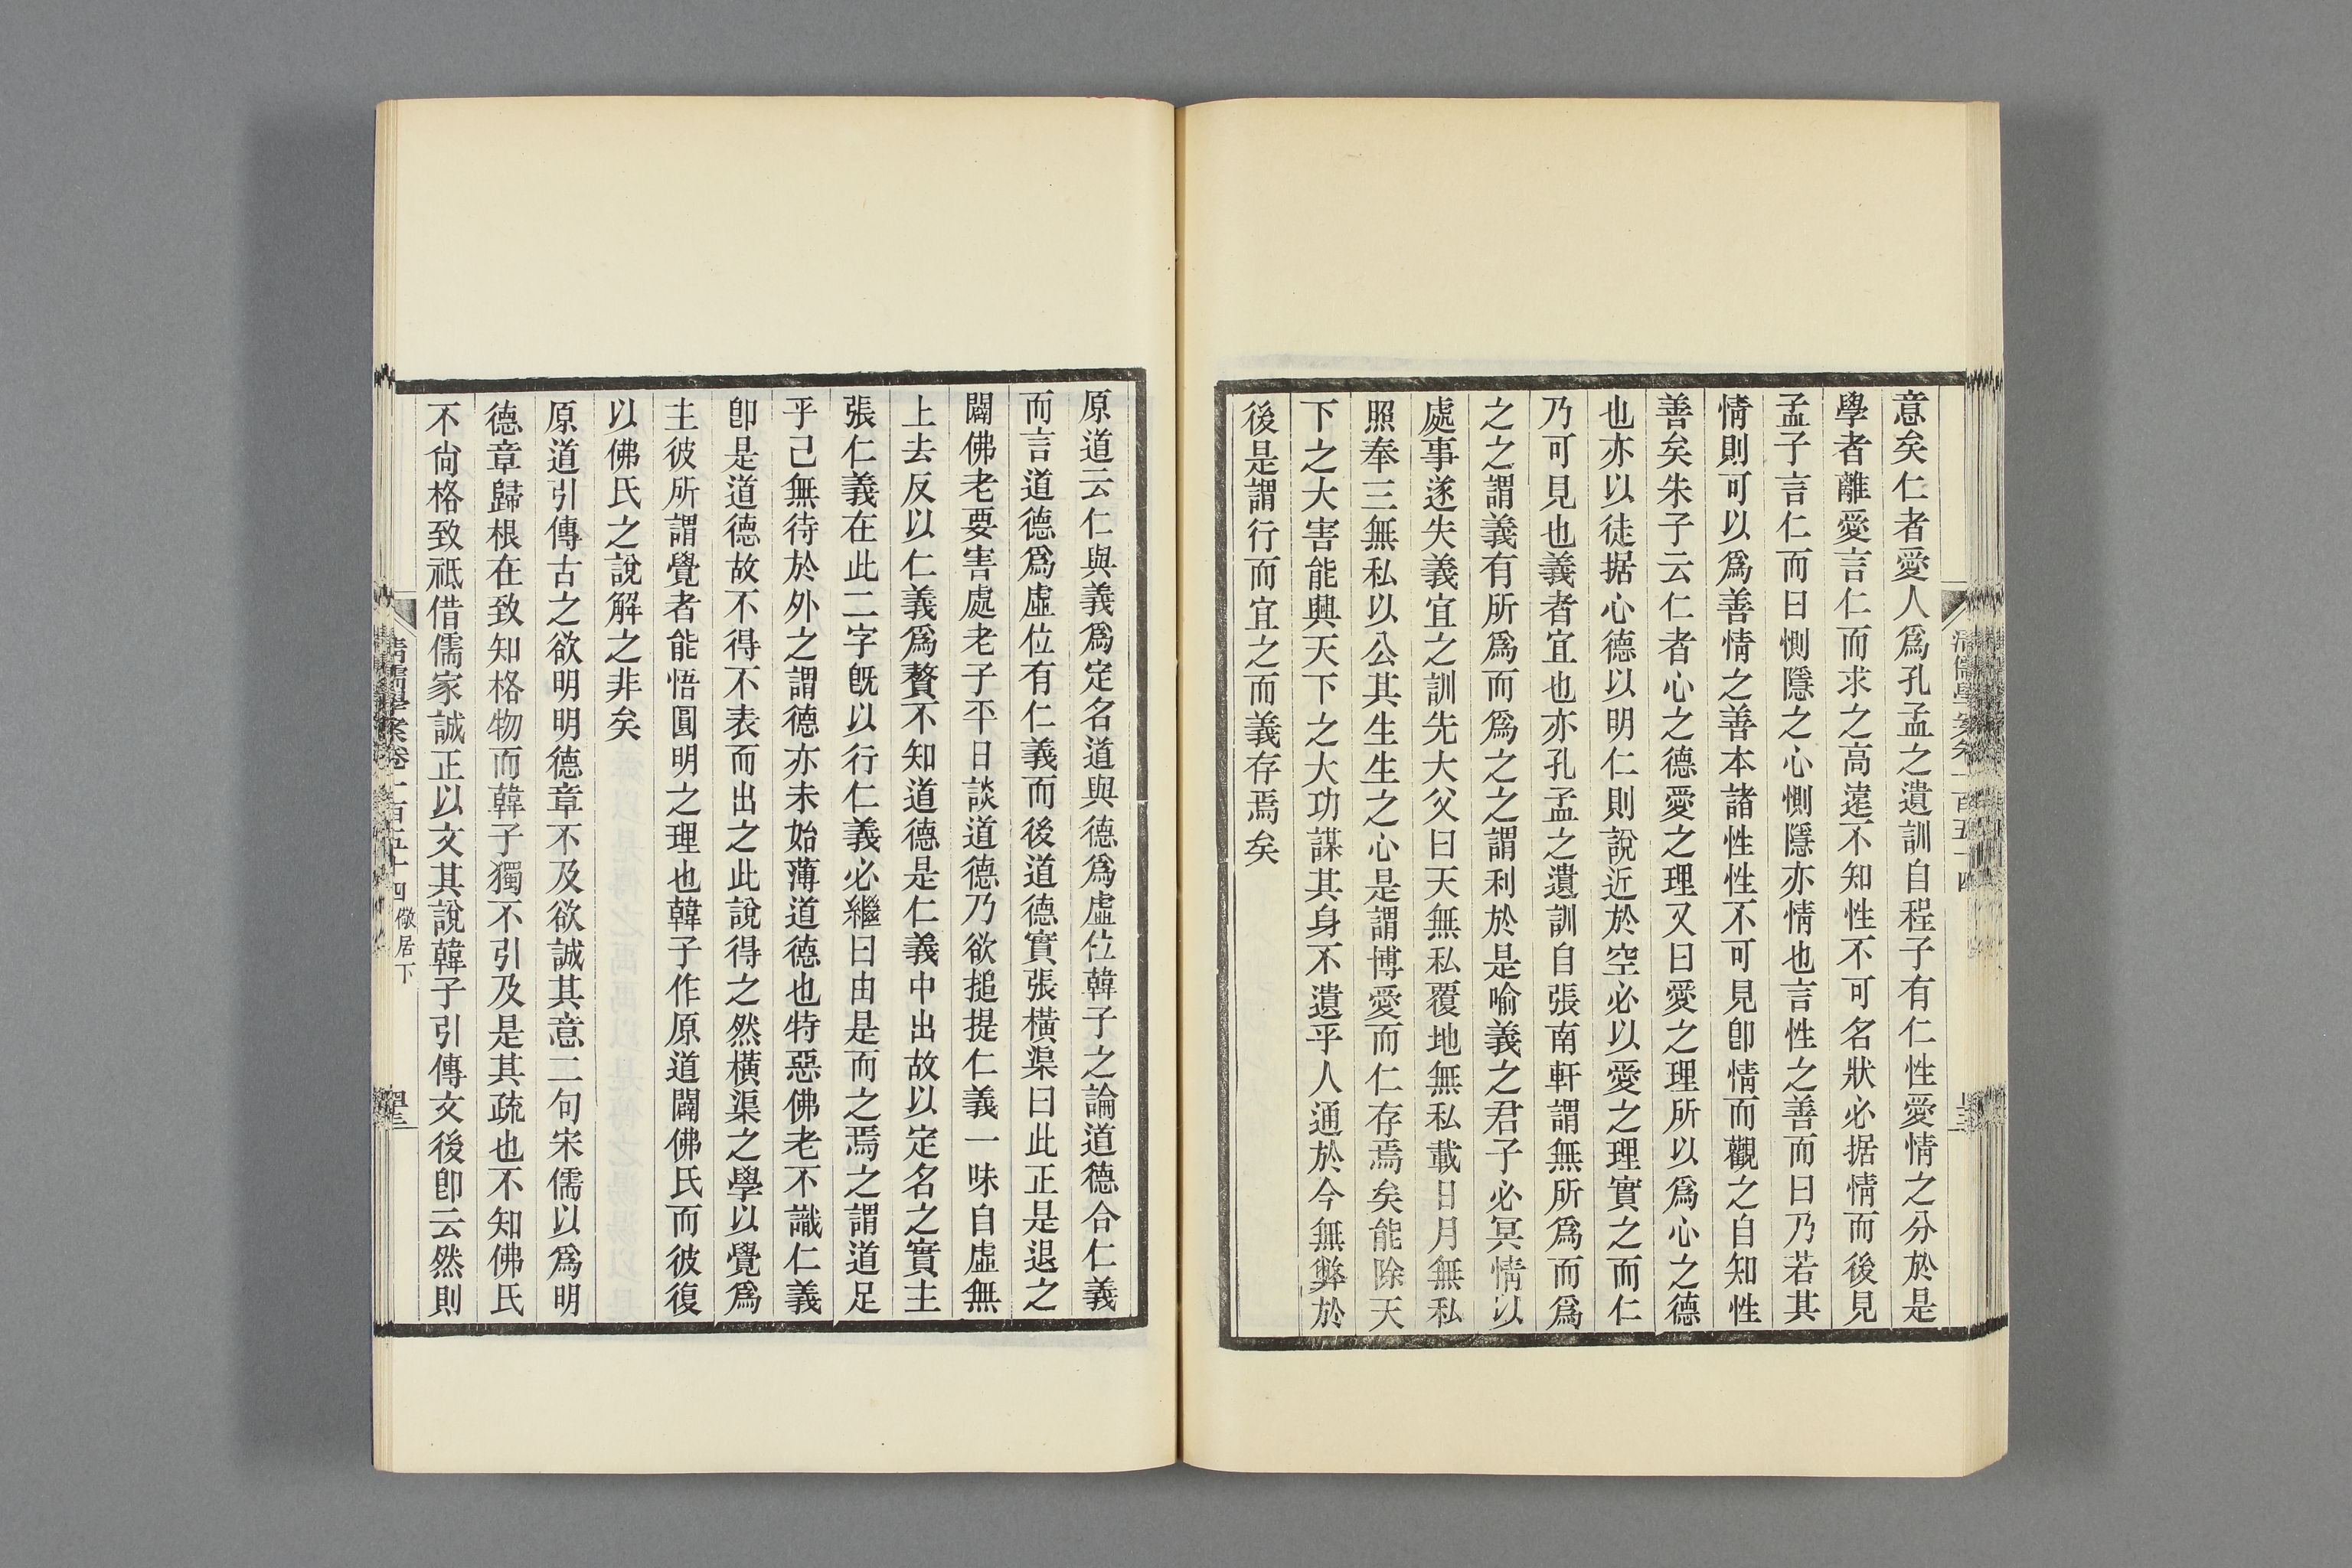 意矣仁者愛人爲孔孟之遺訓自程子有仁性愛情之分於是
學者離愛言仁而求之高遠不知性不可名狀必据情而後見
孟子言仁而曰惻隱之心惻隱亦情也言性之善而曰乃若其
情則可以爲善情之善本諸性性不可見卽情而觀之自知性
善矣朱子云仁者心之德愛之理又曰愛之理所以爲心之德
也亦以徒据心德以明仁則說近於空必以愛之理實之而仁
乃可見也義者宜也亦孔孟之遺訓自張南軒謂無所爲而爲
之之謂義有所爲而爲之之謂利於是喻義之君子必冥情以
處事遂失義宜之訓先大父曰天無私覆地無私載日月無私
照奉三無私以公其生生之心是謂博愛而仁存焉矣能除天
下之大害能興天下之大功謀其身不遺乎人通於今無弊於
後是謂行而宜之而義存焉矣
原道云仁與義爲定名道與德爲虛位韓子之論道德合仁義
而言道德爲虛位有仁義而後道德實張橫渠曰此正是退之
闢佛老要害處老子平日談道德乃欲搥提仁義一味自虛無
上去反以仁義爲贅不知道德是仁義中出故以定名之實主
張仁義在此二字旣以行仁義必繼曰由是而之焉之謂道足
乎己無待於外之謂德亦未始薄道德也特惡佛老不識仁義
卽是道德故不得不表而出之此說得之然橫渠之學以覺爲
主彼所謂覺者能悟圓明之理也韓子作原道闢佛氏而彼復
以佛氏之說解之非矣
原道引傳古之欲明明德章不及欲誠其意二句宋儒以爲明
德章歸根在致知格物而韓子獨不引及是其疏也不知佛氏
不尙格致祇借儒家誠正以文其說韓子引傳文後卽云然則
清儒學案卷一百五十四 儆居下